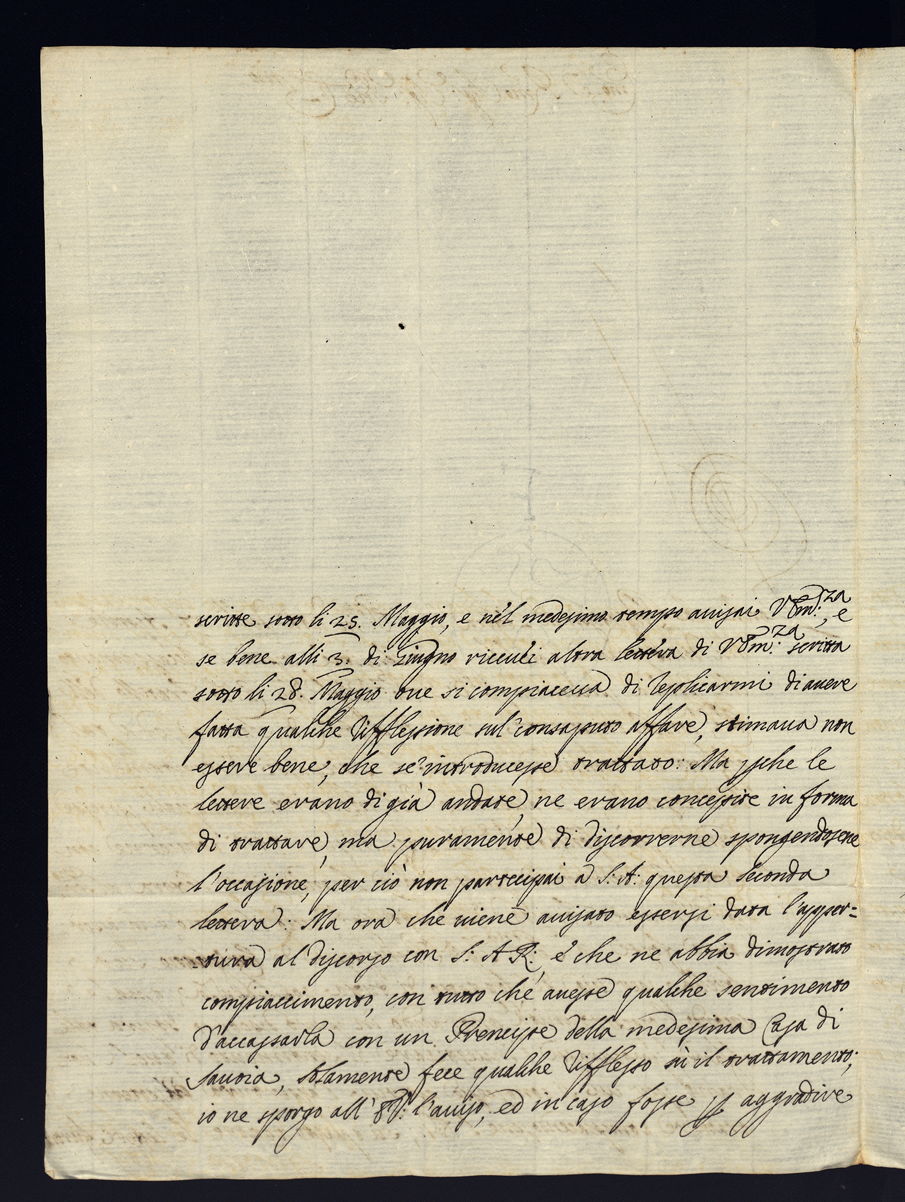 scritte sotto li 25. Maggio, e nel medesimo tempo avisai V. Em:za, e
se bene alli 3. di Giugno riceuei altra lettera di V. Em:za scritta
sotto li 28. Maggio oue si compiaceua di replicarmi di auere
fatta qualche riflessione sul consaputo affare, stimaua non
essere bene, che s'introducesse trattato: Ma perche le
lettere erano di già andate, ne erano concepite in forma
di trattare, ma puramente di discorrerne sporgendosene
l'occasione, per ciò non partecipai a S: A: questa seconda
lettera. Ma ora che viene avisato essersi data l'apper=
tura al discorso con S: A R:, e che ne abbia dimostrato
compiaccimento, con tutto che avesse qualche sentimento
d'accassarla con un Prencipe della medesima Casa di
Savoia, solamente fece qualche riflesso sù il trattamento;
io ne sporgo all' l'aviso, ed in caso fosse per aggradire